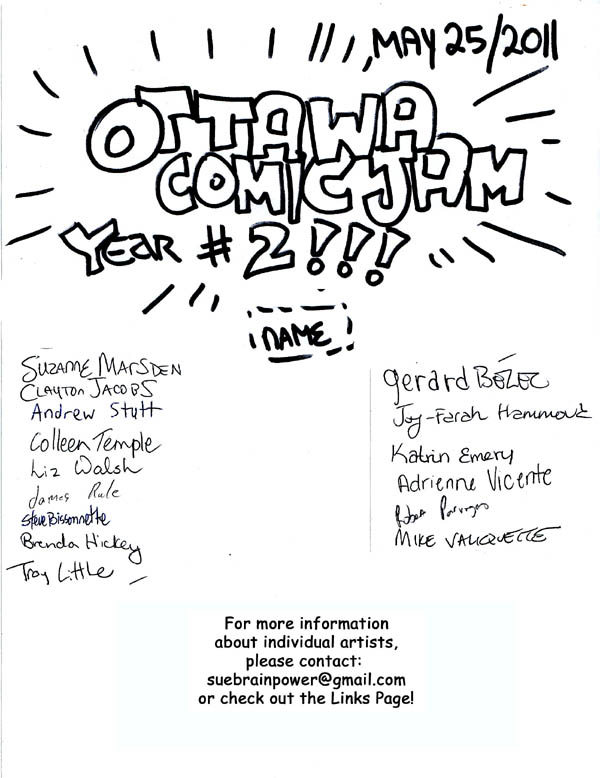 MAY 25/2011
OTTAWA
COMIC JAM
YEAR # 2!!!
NAME
SUZANNE MARSDEN
CLAYTON JACOBS
Andrew Stutt
Colleen Temple
Liz Walsh
James Rule
Steve Bissonnette
Brenda Hickey
Troy Little
gerard BÉZEC
Joy-Farah Hammoud
Katrin Emery
Adrienne Vicente
MIKE VALIQUETTE
For more information
about individual artists,
please contact:
suebrainpower@gmail.com
or check out the Links Page!